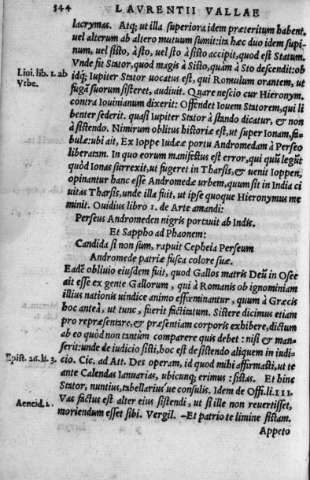 344 LAVRENTII VALLAE
lacrymas. Atq; ut illa superiora idem præteritum habent,
uel alterum ab altero mutuum sumit: ita hæc duo idem supi-
num, uel sisto, à sto, uel sto à sisto accipit, quod est Statum.
Vnde fit Stator, quod magis à Sisto, quàm à Sto descendit: ob
Liui. lib. 1. ab idq; Iupiter Stator uocatus est, qui Romulum orantem, ut
Vrbe. fuga suorum sisteret, audiuit. Quare nescio cur Hieronym.
contra Iouinianum dixerit: Offendet Iouem Statorem, qui li
benter sederit. quasi Iupiter Stator à stando dicatur, & non
à sistendo. Nimirum oblitus historiæ est, ut super Ionam, fa-
bulæ: ubi ait, Ex Ioppe Iudeæ portu Andromedam à Perseo
liberatam. In quo eorum manifestus est error, qui quū legūt
quòd Ionas surrexit, ut fugeret in Tharsis, & uenit Ioppen,
opinantur hanc esse Andromedæ urbem, quum sit in India ci
uitas Tharsis, unde illa fuit, ut ipse quoque Hieronymus me
minit. Ouidius libro 1. de Arte amandi:
Perseus Andromeden nigris portauit ab Indis.
Et Sappho ad Phaonem:
Candida si non sum, rapuit Cepheia Perseum
Andromede patriæ fusca colore suæ.
Eadē obliuio eiusdem fuit, quod Gallos matris Deū in Osee
ait esse ex gente Gallorum, qui à Romanis ob ignominiam
illius nationis uindice animo effœminentur, quum à Græcis
hoc anteà, ut tunc, fuerit factitatum. Sistere dicimus etiam
pro repræsentare, & præsentiam corporis exhibere, dictum
ab eo quòd non tantùm comparere quis debet: nisi & man-
serit: unde de iudicio sisti, hoc est de sistendo aliquem in iudi-
Epist. 26. li. 3. cio. Cic. ad Att. Des operam, id quod mihi affirmasti, ut te
ante Calendas Ianuarias, ubicunq; erimus: sistas. Et hinc
Stator, nuntius, tabellarius'ue consulis. Idem de Offi. li. III.
Aeneid. 2. Vas factus est alter eius sistendi, ut si ille non reuertisset,
moriendum esset sibi. Vergil. – Et patrio te limine sistam.
Appeto